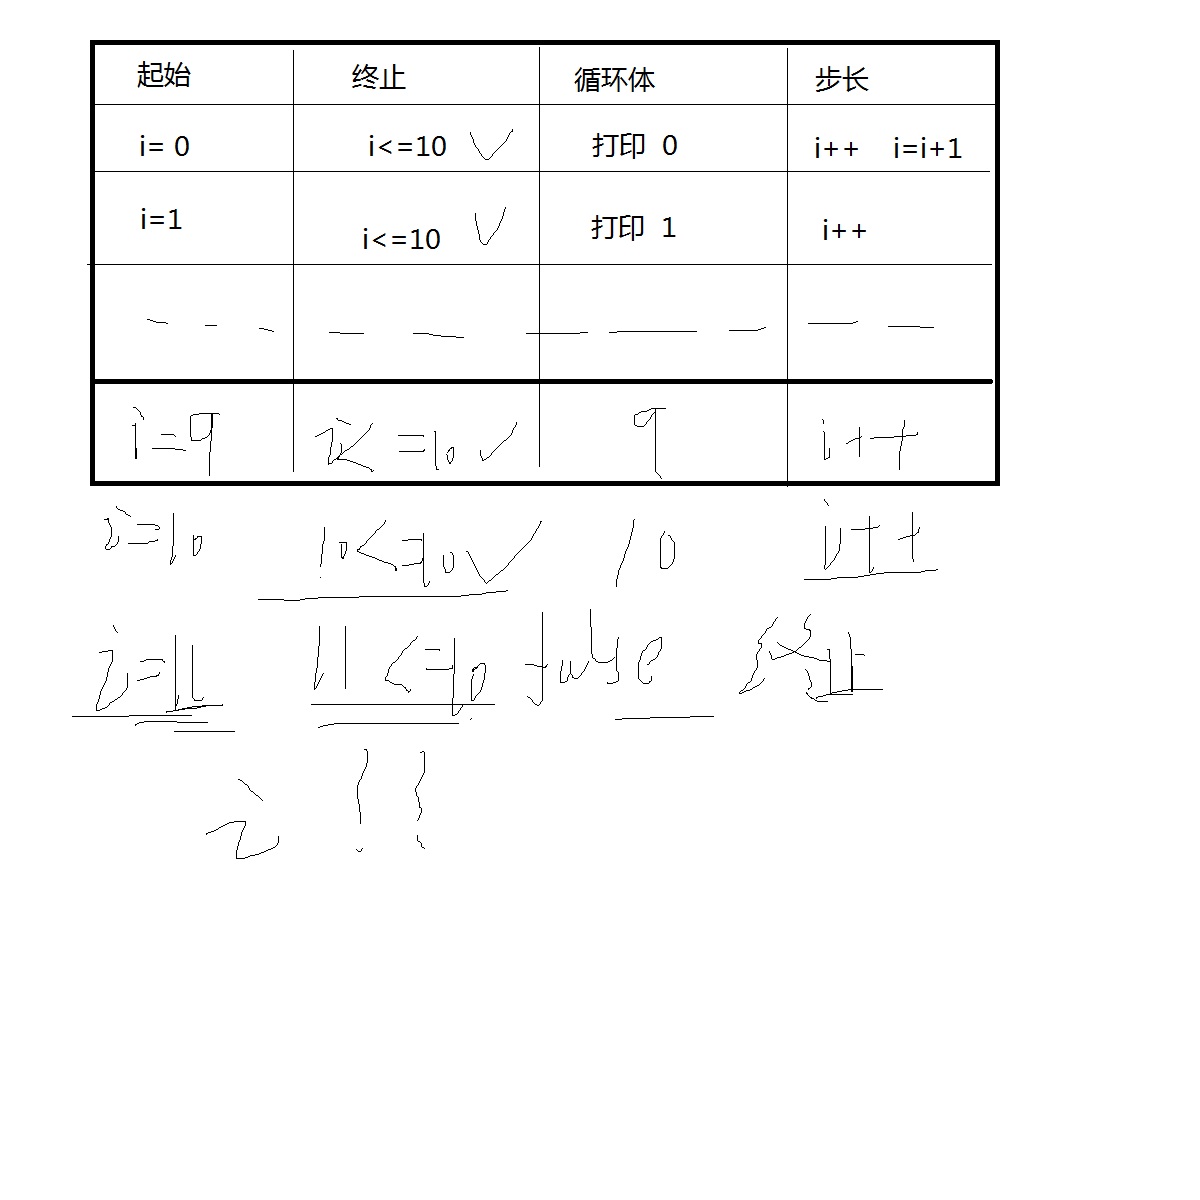 起始 终止 循环体 步长
i= 0 i<=10 打印 0 i++ i=i+1
i=1 i<=10 打印 1 i++
i=9 i<=10 9 i++
i=10 10<=10 10 i++
i=11 11<=10 false 终止
i 11